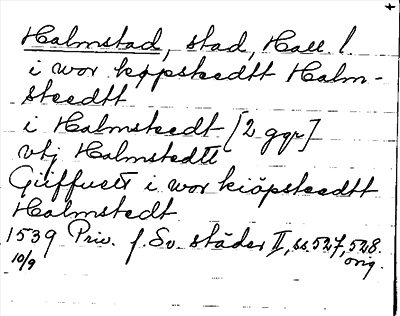 Halmstad, stad, Hall. l.
i wor køpstedtt Halm-
stedtt
i Halmstedt [2 ggr]
vtj Halmstedtt
Giiffuett i wor kiöpstedtt
Halmstedt
1539 Priv. f. Sv. städer II, ss. 527, 528.
10/9 orig.